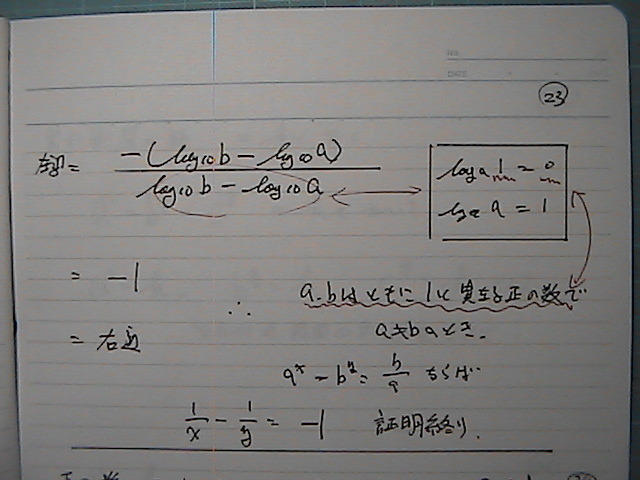 NO.
DATE
㉓
左辺 = -(log₁₀b - log₁₀a) / log₁₀b - log₁₀a
logₐ1 = 0
logₐa = 1
= -1
∴ a.bはともに1と異なる正の数で
= 右辺
a≠bのとき、
aˣ = bʸ = b/a ならば
1/x - 1/y = -1 証明終り.